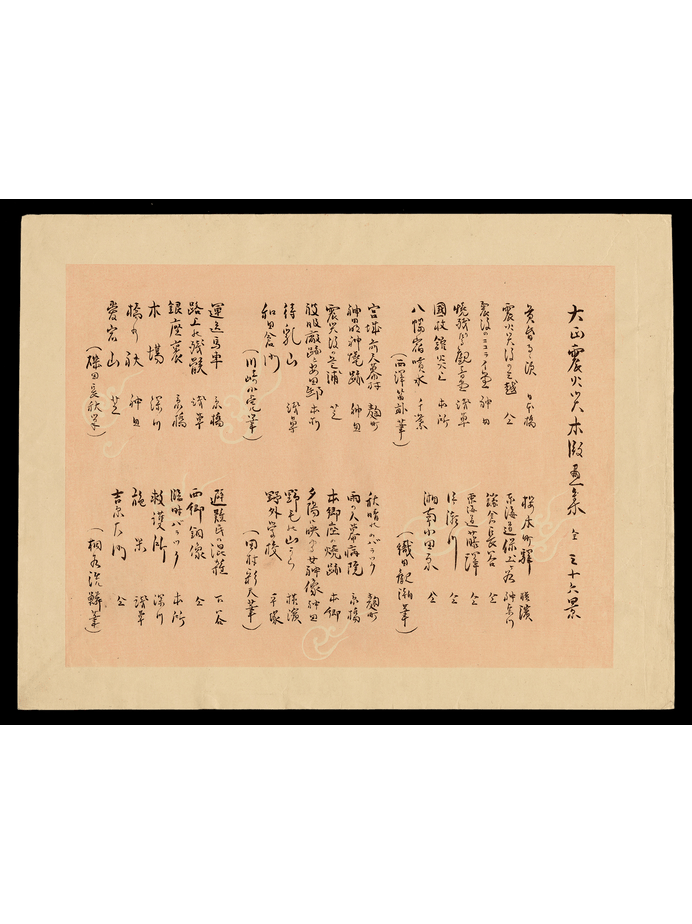 大正震火災木版画集 全三十六景
黄昏の渡 日本橋
震火災後の三越 仝
震後のニコライ堂 神田
焼残りし観音堂 浅草
國技館炎上 本所
八幡宿噴水 千葉
宮城前大幕舎 麹町
神田明神焼跡 神田
震災後の芝浦 芝
被服廠跡と安田邸 本所
待乳山 浅草
和田倉門
(川崎小虎筆)
運送馬車 京橋
路上の残骸 浅草
銀座裏 京橋
木場 深川
橋の秋 神田
愛宕山 芝
(磯田長秋筆)
桜木町驛 横濱
東海道保土ヶ谷 神奈川
鎌倉長谷 仝
東海道藤澤 仝
湘南小田原 仝
(織田観潮筆)
秋晴れのバラック 麹町
雨の天幕病院 京橋
本郷座の焼跡 本郷
夕陽に映ゆる女神像 神田
野毛の山より 横濱
野外学校 平塚
(田村彩天筆)
避難民の混雑 下谷
西郷銅像 仝
臨時バラック 本所
救護所 深川
施米 浅草
吉原大門 仝
(桐谷洗鱗筆)